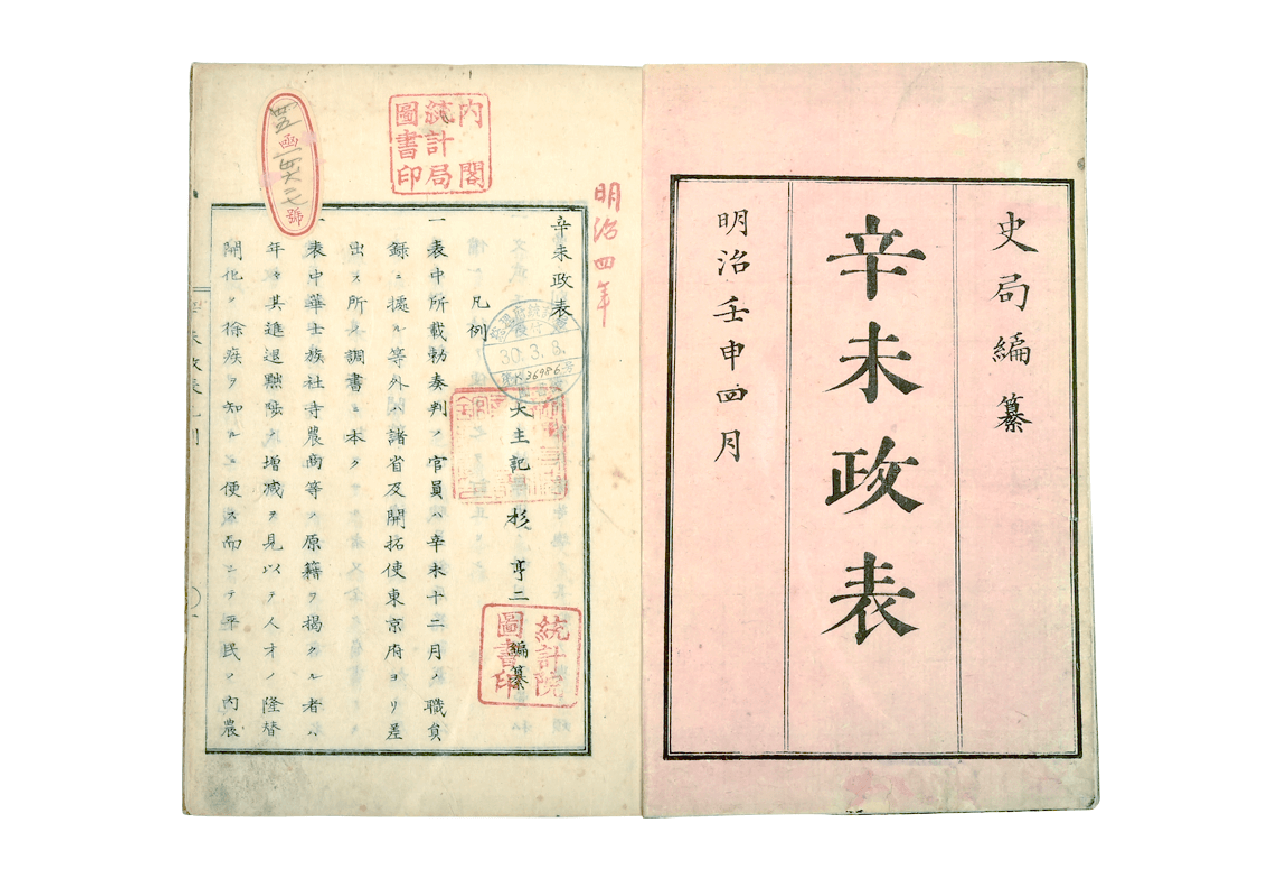 史局編纂
辛未政表
明治壬申四月
明治四年
内閣
統計局
圖書印
函
號
辛未政表
大主記 杉 亨二 編纂
凡例
一表中所載勅奏判ノ官員ハ辛未十二月ノ職員
錄ニ據ル等外ハ諸省及開拓使東京府ヨリ差
出ス所ノ調書ニ本ク
一表中華士族社寺農商等ノ原籍ヲ揭クル者ハ
年々其進退黜陟ノ增減ヲ見以テ人才ノ隆替
開化ノ徐疾ヲ知ルニ便ス而シテ平民ノ內農
30.3.8.
36986
統計院
圖書印